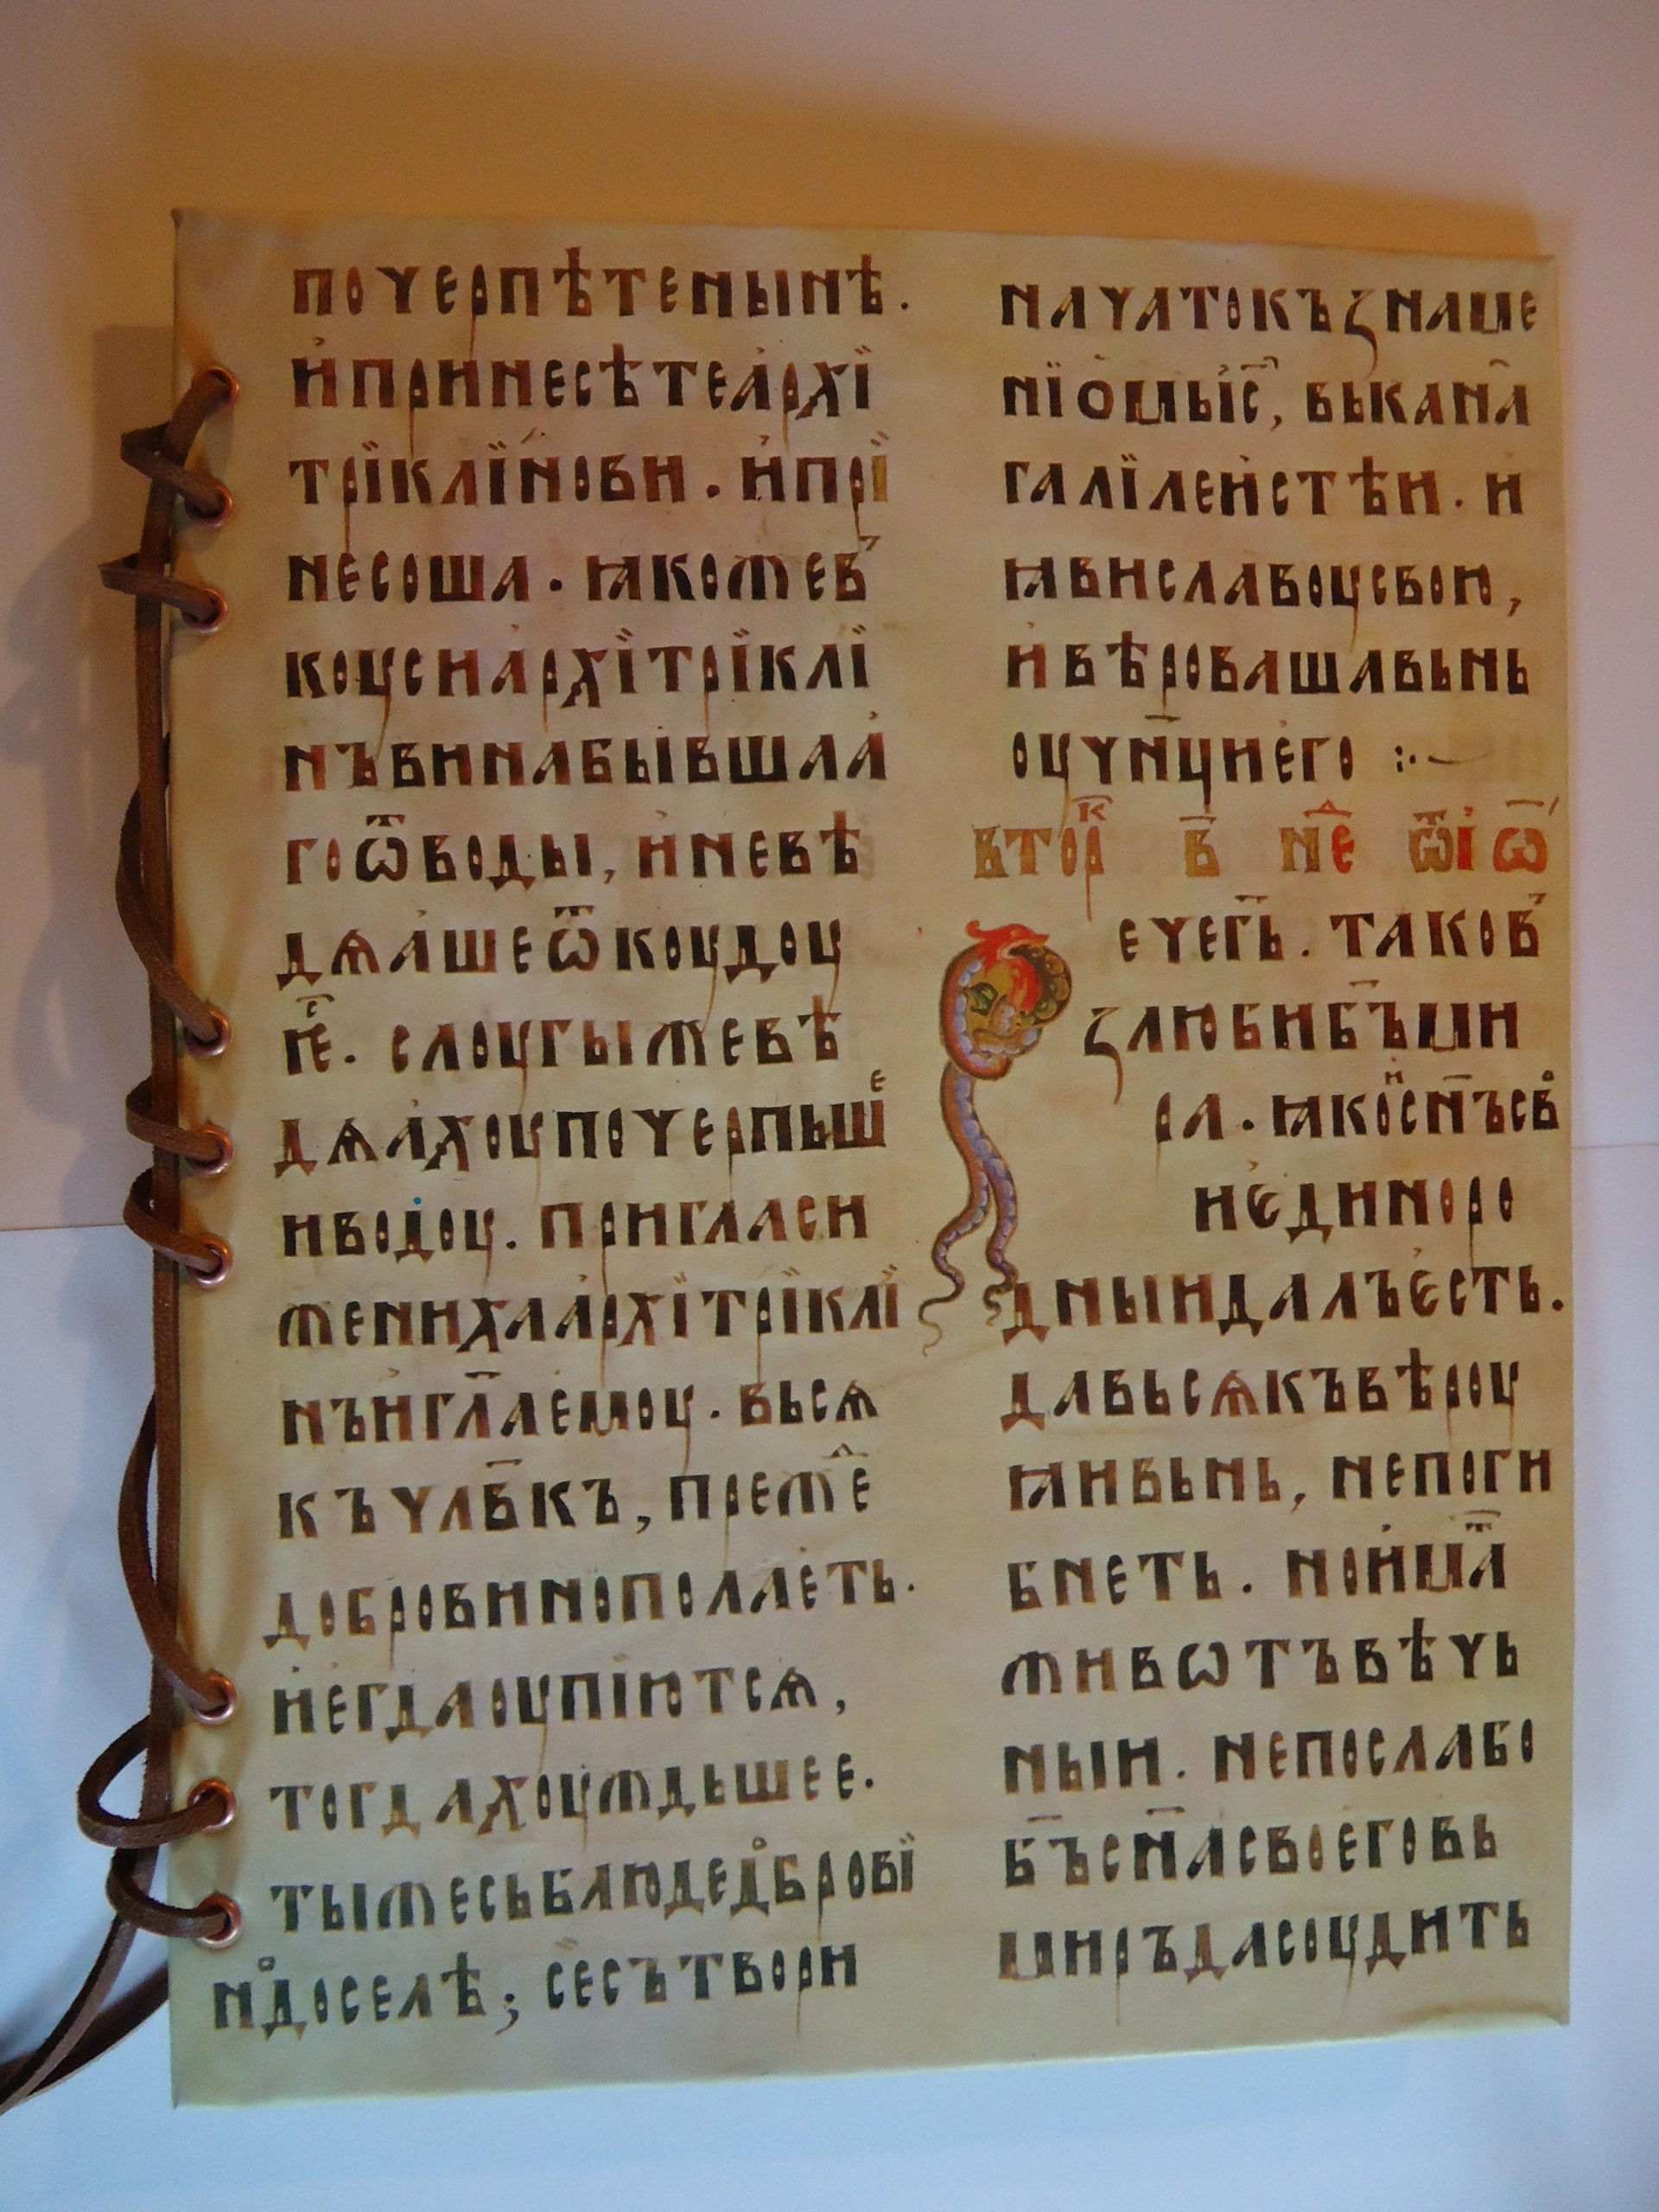 почерпѣтенынѣ.
и҆принесѣтеа҆рхї
трїклїновн. и҆прї
несоша. ꙗкожев҃
коусна҆рхїтрїклї
нъвинабывшаа҆
гоѿводы, и҆невѣ
дѧа҆шеѿкоудоу
и҆є҇. слоугыжевѣ
дѧа҆хоупочерпьшеⷷ
иводоу. пригласи
женихаа҆рхїтрїклї
нъи҆гл҃ае҆моу. вьсѧ
къчлв҃къ, прежеⷣ
добровинополагаеть.
и҆е҆гдаоупїютсѧ,
тогдахоуждьшее.
тыжесьблюдедⷪбровї
нⷪдоселѣ; се҆сътвори
начатокъꙁнаше
нїѡ҆мьі҆с҃, вькана҃
галїлеи҆стѣи. и
ꙗвиславоусвою,
и҆вѣровашавьнь
оучн҃цие҆го :·~
вторⷦ҇ в҃ неⷣ ѿі ѡ҃
Рече гь҃. таков҃
ꙁлюбиб҃ъми
ра. ꙗкоⷩ҆сн҃ъсвⷪ
и҆е҆диноро
дныидалъе҆сть.
давьсѧкъвѣроу
ꙗивьнь, непоги
бнеть. нои҆маⷮ҇
живѡтъвѣчь
ныи. непослабо
б҃ъсн҃асвоеговь
миръдасоудить